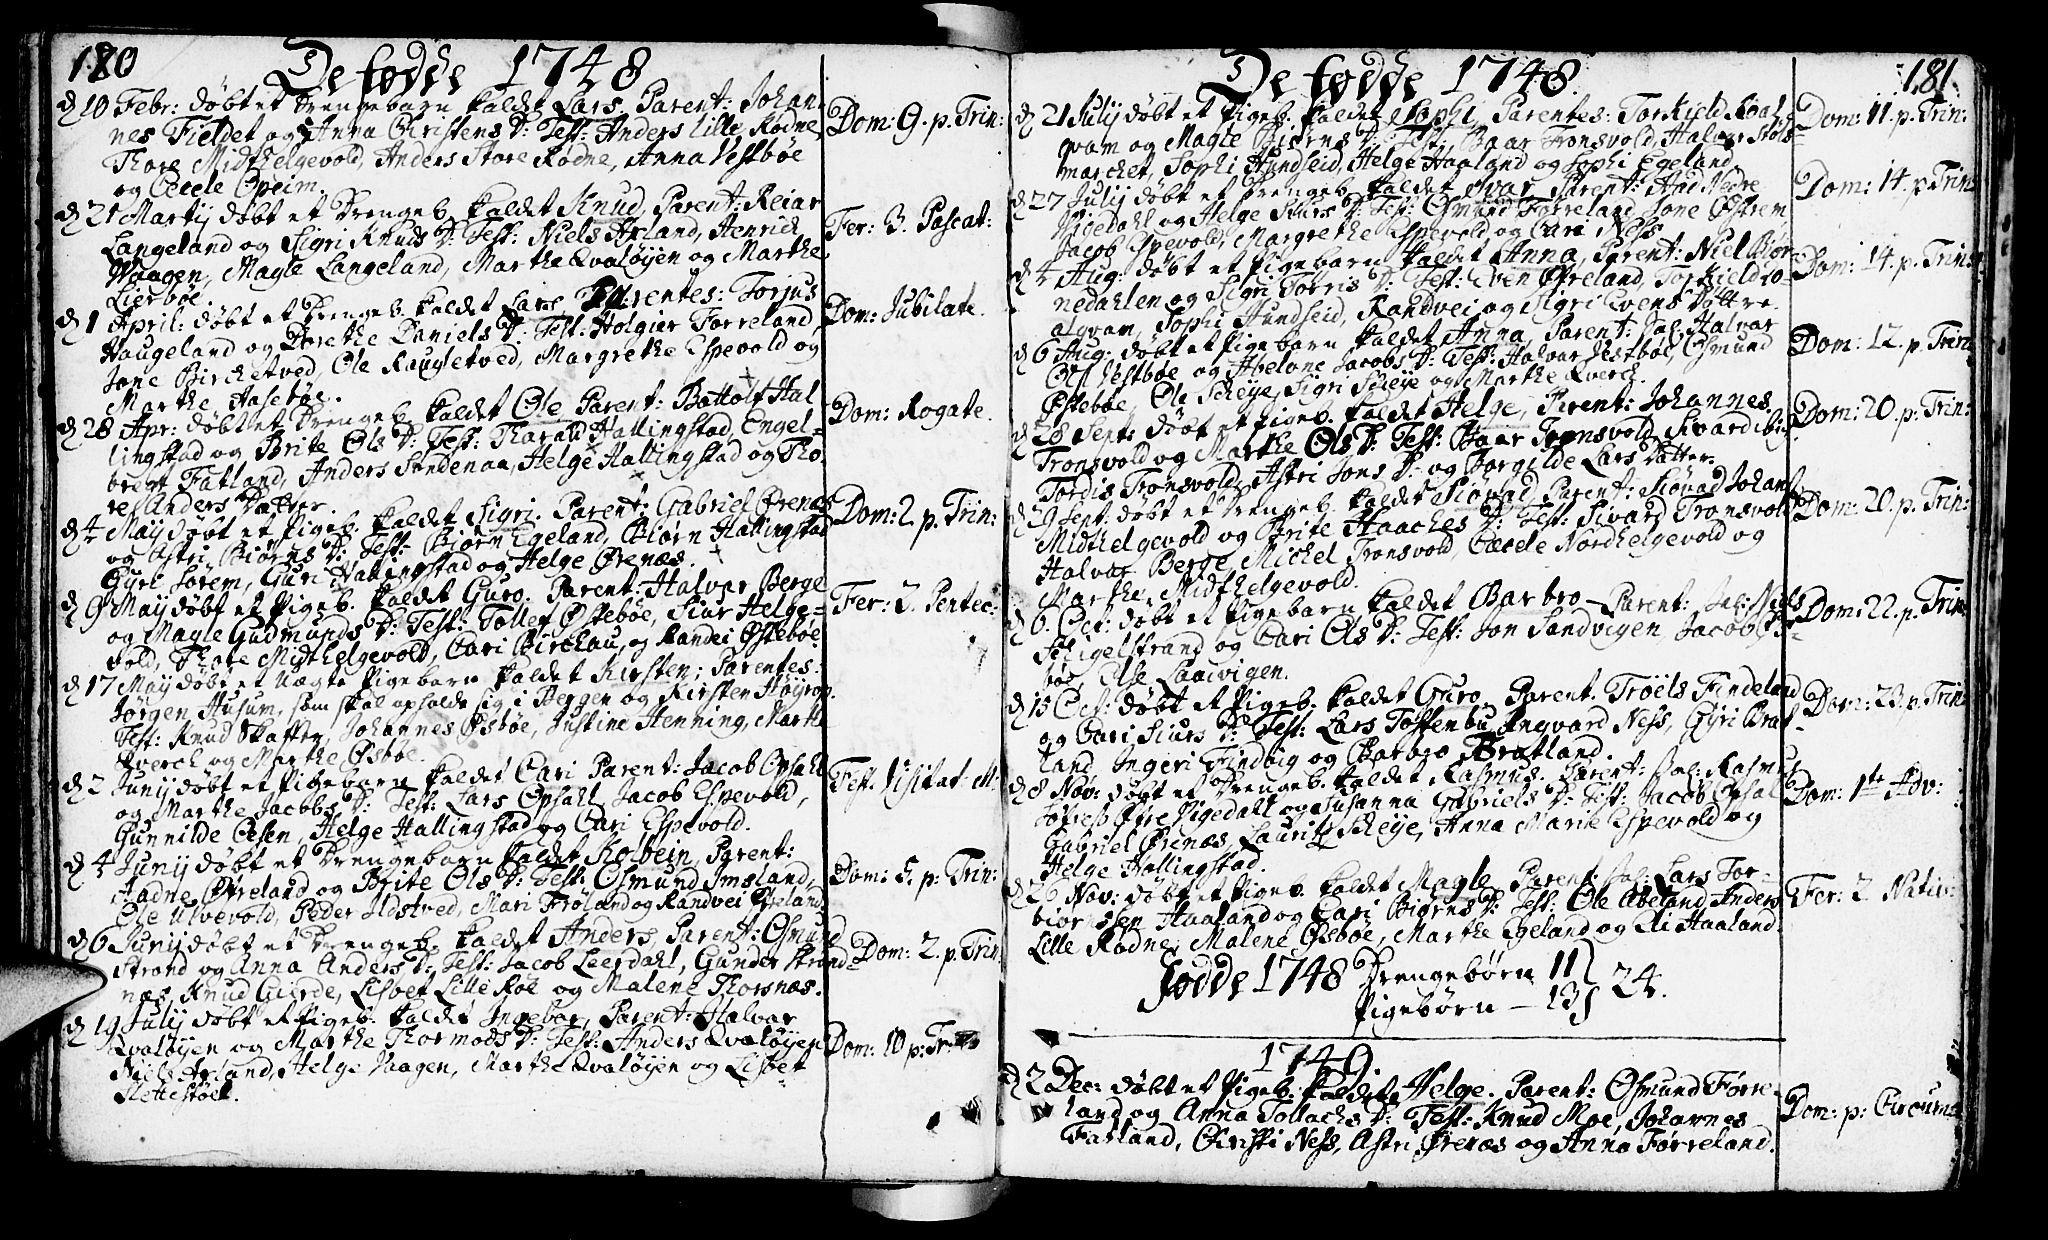 180
De fødde 1748
d 10 Febr: døbt et Drengebarn kaldet Lars, Parent: Johan-
nes Fieldet og Anna Christens D: Test: Anders Lille Rødne,
Thore Midthelgevold, Anders Store Rødne, Anna Vestbøe
og Cecele Opeim.
Dom: 9. p. Trin:
d 21 Martij døbt et Drengeb. kaldet Knud, Parent: Reiar
Langeland og Sigri Knuds D: Test: Niels Arland, Henrich
Waagen, Magle Langeland, Marthe Qvaløyen og Marthe
Lierbøe.
Fer: 3. Pascat:
d 1 April: døbt et Drengeb. kaldet Lars Parentes: Torjus
Haugeland og Dorethe Daniels D: Test: Holgier Førreland,
Jone Birchetved, Ole Raugletved, Margrethe Espevold og
Marthe Aasebøe.
Dom: Jubilate.
d 28 Apr: døbt et Drengeb. kaldet Ole Parent: Bottolf Hal
lingstad og Brite Ols D: Test: Harald Hallingstad, Engel-
bregt Fatland, Anders Sandenaa, Helge Hallingstad og Tho-
re Anders Datter.
Dom: Rogate.
d 4 Maij døbt et Pigeb. kaldet Sigri. Parent: Gabriel Ørenæs
og Astri Biørns D: Test: Biørn Egeland, Biørn Hallingstad
Gyri Sørem, Guri Hallingstad og Helge Ørenæs.
Dom: 2. p. Trin:
d 9 Maij døbt et Pigeb. kaldet Guro. Parent: Halvar Berge
og Magle Gudmunds D: Test: Tollef Østebøe, Siur Helge-
vold, Thore Midthelgevold, Cari Birchau, og Randei Østebøe
Fer: 3. Pentec:
d 17 Maij døbt et Uægte Pigebarn kaldet Kirsten; Parentes:
Jørgen Husum, som skal opholde sig i Bergen og Kirsten Høyrop.
Test: Knud Skaffer, Johannes Øsbøe, Justine Henning, Marthe
Qverck og Marthe Øsbøe.
d 2 Junij døbt et Pigebarn kaldet Cari Parent: Jacob Opsahl
og Marthe Jacobs D: Test: Lars Opsahl, Jacob Espevold,
Gunnilde Oelen, Helge Hallingstad og Cari Espevold.
Fest. Visitat. M:
d 4 Junij døbt et Drengebarn kaldet Kolbein, Parent:
Aadne Øvreland og Brite Ols D: Test: Osmund Imsland,
Ole Ulvevold, Peder Ilstved, Mari Frøland og Randvei Øvreland
Dom: 5. p: Trin:
d 6 Junij døbt et Drengeb. kaldet Anders, Parent: Osmund
Strand og Anna Anders D: Test: Jacob Leerdahl, Gunder Strand-
næs, Knud Gierde, Lisbet Lille Røe og Malene Thorsnæs.
Dom: 2. p. Trin.
d 19 Julij døbt et Pigeb. kaldet Ingebor, Parent: Halvar
Qvaløyen og Marthe Thormods D: Test: Anders Qvaløyen
Niels Arland, Helge Vaagen, Marthe Qvaløyen og Lisbet
Slettestøel.
Dom: 10 p: Tr:
181
De fødde 1748.
d 21 Julij døbt et Pigeb. kaldet Sophi, Parentes: Torkield Roal-
qvam og Magle Assens D: Test: Baar Tronsvold, Halvar Stols-
marchet, Sophi Hundseid, Helge Haaland og Sophi Egeland.
Dom: 11. p. Trin:
d 27 Julij døbt et Drengeb. kaldet Ivar Parent: Aad Nedre
Vigedahl og Helge Siurs D: Test: Osmund Førreland, Jone Østrem
Jacob Espevold, Margrethe Espevold og Cari Ness.
Dom: 14. p. Trin:
d 4 Aug: døbt et Pigebarn kaldet Anna, Parent: Niel Biør-
nedahlen og Sigri Torris D: Test: Even Øvreland, Torkield Ro-
alqvam, Sophi Hundseid, Randvei og Sigri Evens Døttre.
Dom: 14. p. Trin:
d 6 Aug: døbt et Pigebarn kaldet Anna, Parent: Sal. Halvar
Ols Vestbøe og Abelone Jacobs D: Test: Halvar Vestbøe, Osmund
Østebøe, Ole Scheye, Sigri Scheye og Marthe Qverck.
Dom: 12. p. Trin:
d 28 Sept: døbt et Pigeb. kaldet Helge, Parent: Johannes
Tronsvold og Marthe Ols D: Test: Baar Tronsvold, Sivard ibid:
Tordis Tronsvold, Astri Jons D: og Borgilde Lars Datter.
Dom: 20. p. Trin:
d 29 Sept. døbt et Drengeb. kaldet Siovad, Parent: Siovad Johans
Midthelgevold og Brite Haaches D: Test: Sivard Tronsvold
Halvar Berge, Michel Tronsvold, Cæcele Nordhelgevold og
Marthe Midthelgevold.
Dom: 20. p. Trin:
d 6. Oct: døbt et Pigebarn kaldet Barbro Parent: Sal: Niels
Schigelstrand og Cari Ols D: Test: Jon Sandvigen, Jacob Øs-
bøe, Else Laaivigen.
Dom: 22. p. Trin:
d 15 Oct: døbt et Pigeb. kaldet Guro, Parent. Troels Findeland
og Cari Siurs D: Test: Lars Tøssenbu, Ingvard Ness, Gyri Brat-
land, Ingeri Findvig og Barbro Bratland.
Dom: 23. p. Trin:
d 8 Nov: døbt et Drengeb. kaldet Rasmus. Parent: Sal: Rasmus
Jofress Øvre Vigedahl og Susanna Gabriels D: Test: Jacob Opsal
Gabriel Ørenæs, Lauritz Scheye, Anna Marie Espevold og
Helge Hallingstad.
Dom: 1te Adv:
d 26 Nov: døbt et Pigeb. kaldet Magle Parent: Sal: Lars Tor-
biørnsen Haaland og Cari Biørns D: Test: Ole Abeland, Anders
Lille Rødne, Malene Øsbøe, Marthe Egeland og Eli Haaland.
Fer: 2 Nativ:
Fødde 1748 Drengebørn 11
Pigebørn — 13 } 24.
1749.
d 2 Dec: døbt et Pigeb: kaldet Helge. Parent: Osmund Førre-
land og Anna Tollachs D: Test: Knud Moe, Johannes
Fatland, Christi Ness, Astri Ørenæs og Anna Førreland.
Dom: p: Circum: